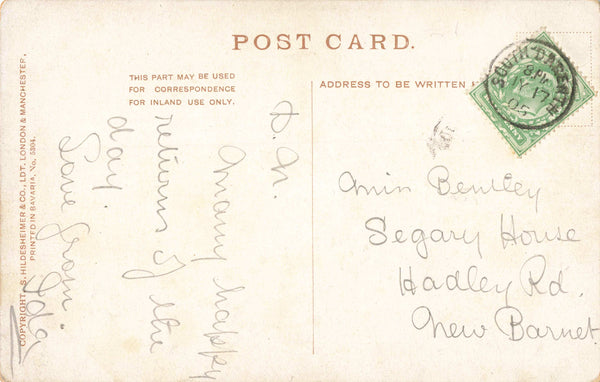 POST CARD.
THIS PART MAY BE USED
FOR CORRESPONDENCE
FOR INLAND USE ONLY.
ADDRESS TO BE WRITTEN
D. N.
Many happy
returns of the
day.
Love from
Ida
Miss Bentley
Segary House
Hadley Rd.
New Barnet.
8 PM
17
05
COPYRIGHT, S. HILDESHEIMER & CO., LDT. LONDON & MANCHESTER.
PRINTED IN BAVARIA, No. 5304.